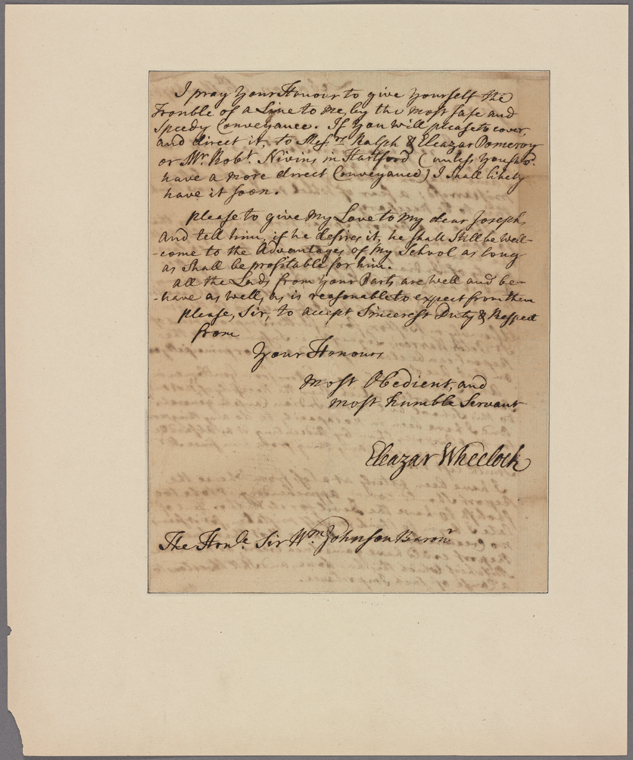 I pray your Honour to give yourself the
Trouble of a Line to me, by the most safe and
Speedy Conveyance. If you will please to cover,
and direct it, to Messrs. Ralph & Eleazar Pomeroy
or Mr. Robt. Nivins in Hartford (unless you
have a more direct Conveyance) I shall likely
have it soon.
please to give my Love to my dear Joseph,
and tell him, if he desires it, he shall Still be well-
come to the Advantages of my School as long
as shall be profitable for him.
all the Lads from your Parts are well and be-
-have as well, as is reasonable to expect from them
please, Sir, to accept Sincerest Duty & Respect
from
Your Honours
most Obedient, and
most humble Servant
Eleazar Wheelock
The Honle. Sir Wm. Johnson Baront.